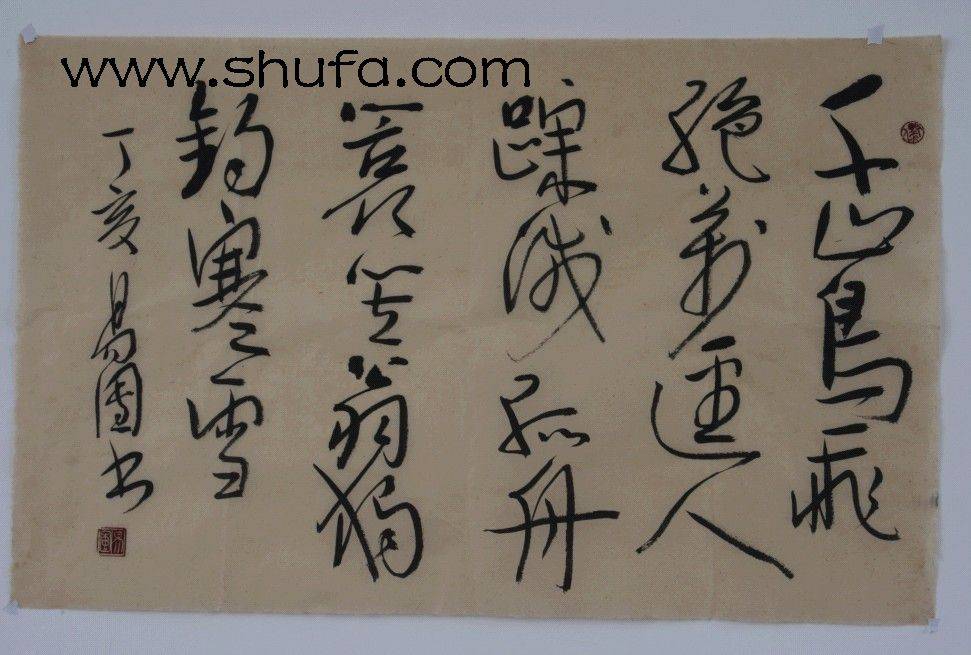 www.shufa.com
千山鳥飛
絕萬逕人
踪滅孤舟
蓑笠翁獨
釣寒雪
丁亥易團书